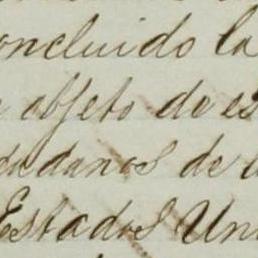 concluido la
objeto de es
dadanos de
Estados Uni